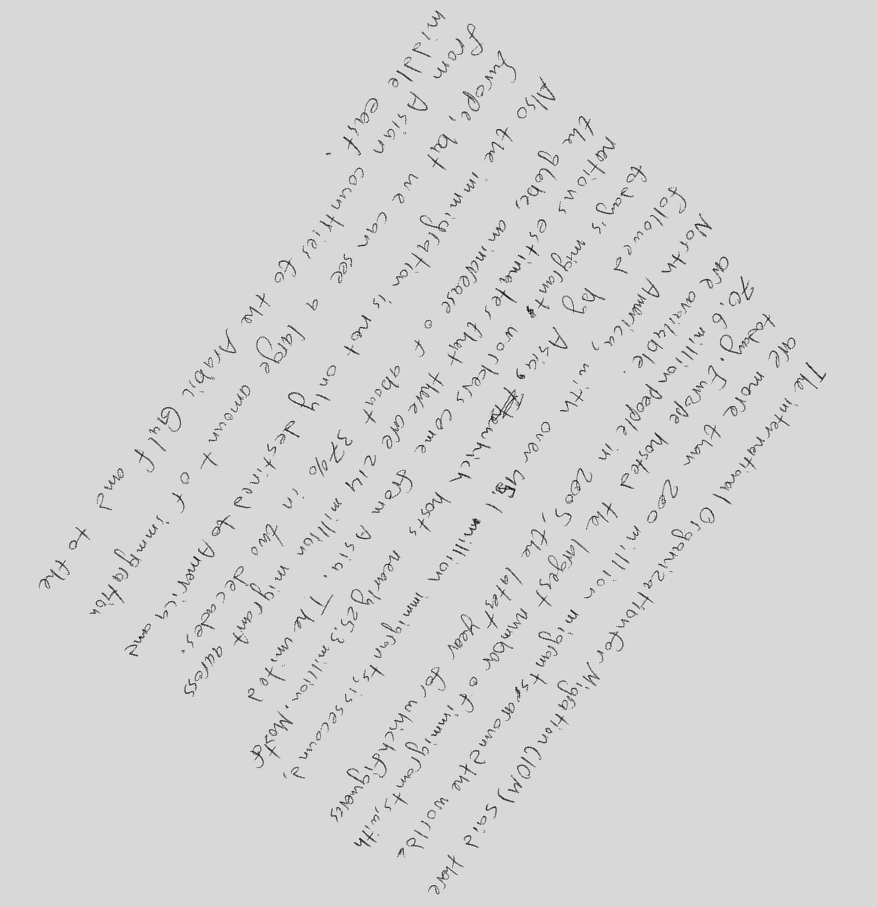 The international Organization for Migration (IOM) said there
are more than 200 million migrants around the world
today. Europe hosted the largest number of immigrants, with
70,6 million people in 2005, the latest year for which figuers
are available.
North America, with over 45,1 million immigrants, is secound,
followed by Asia, which hosts nearly 25.3 million. Most of
today's migrants workers come from Asia. The united
nations estimates that there are 214 million migrant across
the globe, an increase of about 37% in two decades.
Also the immigration is not only destined to America and
Europe, but we can see a large amount of immigration
from Asian countries to the Arabic Gulf and to the
middle east.